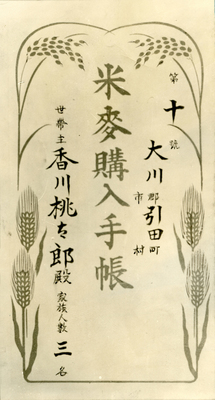 第十號
大川郡引田町
市村
米麥購入手帳
世帶主香川桃太郎殿家族人數三名